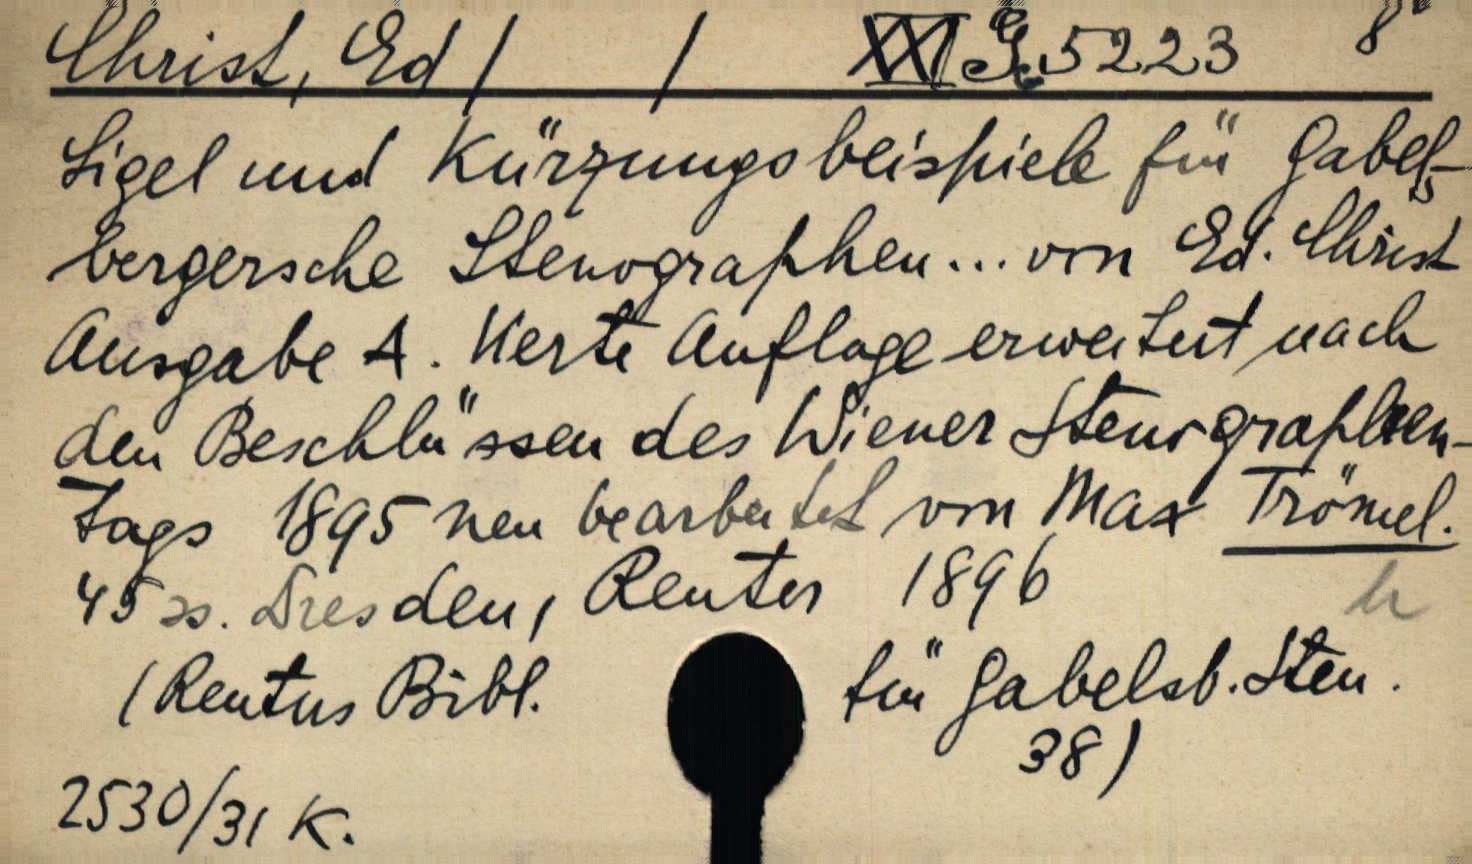 Christ, Ed / / XXI G. 5223 8°
Sigel und Kürzungsbeispiele für Gabels-
bergersche Stenographen... von Ed. Christ
Ausgabe A. Vierte Auflage erweitert nach
den Beschlüssen des Wiener Stenographen-
tags 1895 neu bearbeitet von Max Trömel.
45 ss. Dresden, Reuter 1896
(Reuters Bibl. für Gabelsb. Sten.
38)
2530/31 K.